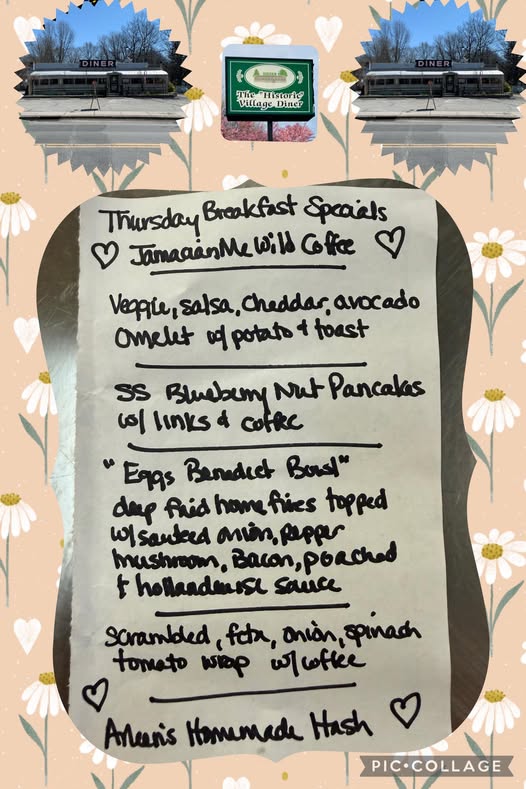 DINER
DINER
The "Historic"
Village Diner
Thursday Breakfast Specials
JamaicanMe Wild Coffee
Veggie, salsa, cheddar, avocado
omelet w/ potato & toast
SS Blueberry Nut Pancakes
w/ links & coffee
"Eggs Benedict Bowl"
deep fried home fries topped
w/ sauteed onion, pepper
mushroom, Bacon, poached
& hollandaise sauce
Scrambled, feta, onion, spinach
tomato wrap w/ coffee
Arleen's Homemade Hash
PIC•COLLAGE